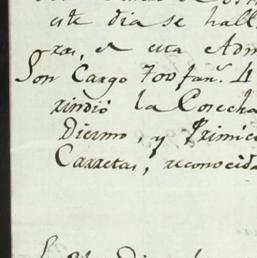 este dia se hall
zas, en esta Adm
Son Cargo 700 fan.s 4
rindió la Cosecha
Diezmo, y Primic
Carretas, reconocida